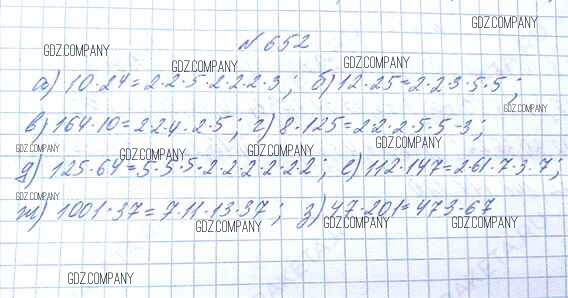 № 652
GDZ.COMPANY GDZ.COMPANY GDZ.COMPANY
а) 10·24=2·2·5·2·2·2·3; б) 12·25=2·2·3·5·5;
GDZ.COMPANY
в) 164·10=2·2·4·2·5; г) 8·125=2·2·2·5·5·3;
GDZ.COMPANY GDZ.COMPANY GDZ.COMPANY GDZ.COMPANY
д) 125·64=5·5·5·2·2·2·2·2·2; е) 112·147=2·61·7·3·7;
GDZ.COMPANY
ж) 1001·37=7·11·13·37; з) 47·201=473·67
GDZ.COMPANY GDZ.COMPANY GDZ.COMPANY
GDZ.COMPANY